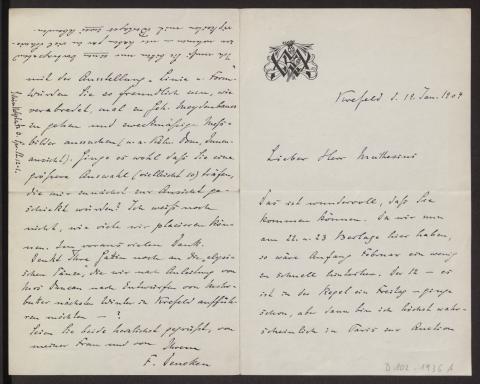 Krefeld d. 19. Jan. 1904
Lieber Herr Muthesius
Das ist wundervoll, daß Sie
kommen können. Da wir nun
am 22. u. 23 Berlage hier haben,
so wäre Anfang Februar ein wenig
zu schnell hinterher. Der 12 – es
ist in der Regel ein Freitag – ginge
schon, aber dann bin ich höchst wahr-
scheinlich in Paris zur Auction
mit der Ausstellung „Linie u. Form“
würden Sie so freundlich sein, wie
verabredet, mal zu Geh. Meydenbauer
zu gehen und zweckmäßige Meß-
bilder aussuchen (u. a. Köln. Dom, Innen-
ansicht). Ginge es wohl daß Sie eine
größere Auswahl (vielleicht 10) träfen,
die mir zunächst zur Ansicht ge-
schickt würden? Ich weiß noch
nicht, wie viele wir placieren kön-
nen. Im voraus vielen Dank.
Denkt Ihre Gattin noch an die elysi-
schen Tänze, die wir nach Anleitung von
Miss Duncan nach Entwürfen von
nächsten Winter in Krefeld auffüh-
ren möchten – ?
Seien Sie beide herzlichst gegrüßt, von
meiner Frau und von Ihrem
F. Deneken
D 102 - 1936 A